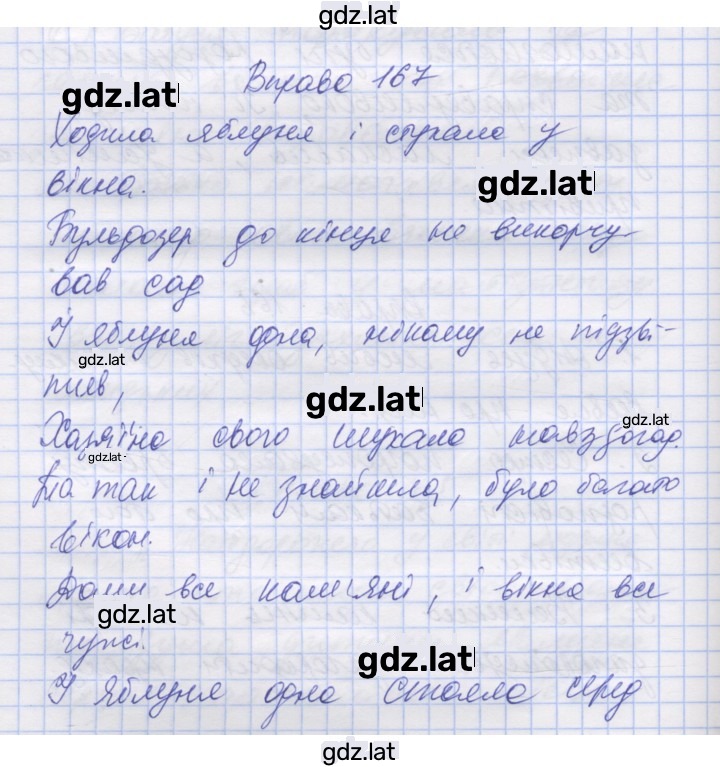 gdz.lat
Вправа 167
gdz.lat
Ходила яблуня і стукала у
вікна.
gdz.lat
Бульдозер до кінця не викорчу-
вав сад
І яблуня одна, нікому не підзві-
gdz.lat
тнев,
gdz.lat
Хазяїна свого шукала навздогад.
gdz.lat
gdz.lat
Та так і не знайшла, було багато
вікон.
Доми все кам'яні, і вікна все
gdz.lat
чужі.
gdz.lat
І яблуня одна стояла серед
gdz.lat